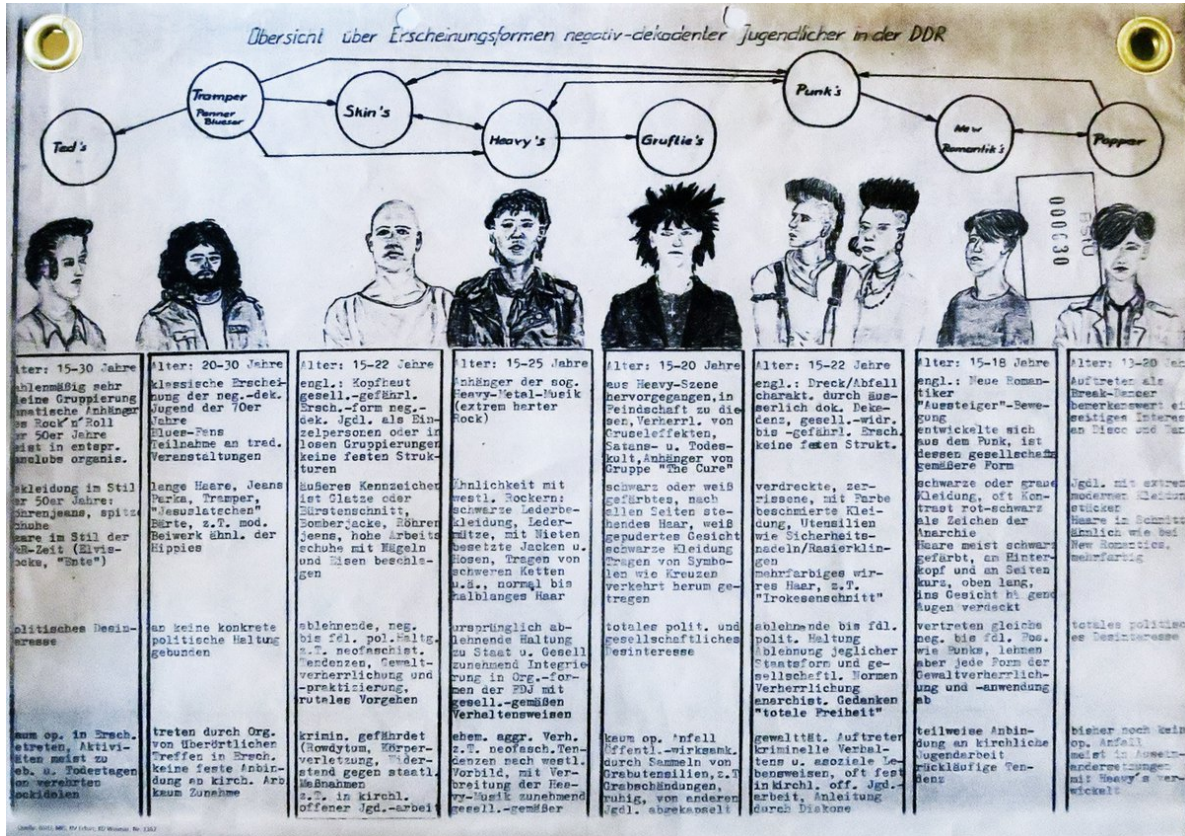 Übersicht über Erscheinungsformen negativ-dekadenter Jugendlicher in der DDR
Ted's
Tramper
Penner
Blueser
Skin's
Heavy's
Gruftie's
Punk's
New
Romantik's
Popper
000030
BStU
lter: 15-30 Jahre
ahlenmäßig sehr
leine Gruppierung
matische Anhänger
es Rock'n'Roll
er 50er Jahre
eist in entspr.
anclubs organis.
ekleidung im Stil
er 50er Jahre:
öhrenjeans, spitze
chuhe
aare im Stil der
(Elvis-
ocke, "Ente")
olitisches Desin-
eresse
aum op. in Ersch.
etreten, Aktivi-
äten meist zu
eb. u. Todestagen
on verehrten
ockidolen
Alter: 20-30 Jahre
klassische Erschei-
nung der neg.-dek.
Jugend der 70er
Jahre
Blues-Fens
Teilnahme an trad.
Veranstaltungen
lange Haare, Jeans
Parka, Tramper,
"Jesuslatschen"
Bärte, z.T. mod.
Beiwerk ähnl. der
Hippies
an keine konkrete
politische Haltung
gebunden
treten durch Org.
von überörtlichen
Treffen in Ersch.
keine feste Anbin-
dung an kirchl. Arb
kaum Zunehme
Alter: 15-22 Jahre
engl.: Kopfhaut
gesell.-gefährl.
Ersch.-form neg.-
dek. Jgdl. als Ein-
zelpersonen oder in
losen Gruppierungen
keine festen Struk-
turen
äußeres Kennzeichen
ist Glatze oder
Bürstenschnitt,
Bomberjacke, Röhren
jeans, hohe Arbeits
schuhe mit Nägeln
und Eisen beschla-
gen
ablehnende, neg.
bis fdl. pol.Haltg.
z.T. neofaschist.
Tendenzen, Gewalt-
verherrlichung und
-praktizierung,
rutales Vorgehen
krimin. gefährdet
(Rowdytum, Körper-
verletzung, Wider-
stand gegen staatl.
Maßnahmen
z.T. in kirchl.
offener Jgd.-arbeit
Alter: 15-25 Jahre
Anhänger der sog.
Heavy-Metal-Musik
(extrem harter
Rock)
Ähnlichkeit mit
westl. Rockern:
schwarze Lederbe-
kleidung, Leder-
mütze, mit Nieten
besetzte Jacken u.
Hosen, Tragen von
schweren Ketten
u.ä., normal bis
halblanges Haar
ursprünglich ab-
lehnende Haltung
zu Staat u. Gesell
zunehmend Integrie
rung in Org.-for-
men der FDJ mit
gesell.-gemäßen
Verhaltensweisen
ehem. aggr. Verh.
z.T. neofasch.Ten-
denzen nach westl.
Vorbild, mit Ver-
breitung der Hea-
vy-Musik zunehmend
gesell.-gemäßer
Alter: 15-20 Jahre
aus Heavy-Szene
hervorgegangen,in
Feindschaft zu die
sen,Verherrl. von
Gruseleffekten,
Satans- u. Todes-
kult,Anhänger von
Gruppe "The Cure"
schwarz oder weiß
gefärbtes, nach
allen Seiten ste-
hendes Haar, weiß
gepudertes Gesicht
schwarze Kleidung
Tragen von Symbo-
len wie Kreuzen
verkehrt herum ge-
tragen
totales polit. und
gesellschaftliches
Desinteresse
kaum op. Anfall
Öffentl.-wirksamk.
durch Sammeln von
Grabutensilien,z.T
Grabschändungen,
ruhig, von anderen
Jgdl. abgekapselt
Alter: 15-22 Jahre
engl.: Dreck/Abfall
charakt. durch äus-
serlich dok. Deka-
denz, gesell.-widr.
bis -gefährl. Ersch.
keine festen Strukt.
verdreckte, zer-
rissene, mit Farbe
beschmierte Klei-
dung, Utensilien
wie Sicherheits-
nadeln/Rasierklin-
gen
mehrfarbiges wir-
res Haar, z.T.
"Irokesenschnitt"
ablehnende bis fdl.
polit. Haltung
Ablehnung jeglicher
Staatsform und ge-
sellschaftl. Normen
Verherrlichung
anarchist. Gedanken
"totale Freiheit"
gewalttät. Auftreten
kriminelle Verhal-
tens u. asoziale Le-
bensweisen, oft fest
in kirchl. off. Jgd.-
arbeit, Anleitung
durch Diakone
Alter: 15-18 Jahre
engl.: Neue Roman-
tiker
"Aussteiger"-Bewe-
gung
entwickelte sich
aus dem Punk, ist
dessen gesellschafts
gemäßere Form
schwarze oder graue
Kleidung, oft Kon-
trast rot-schwarz
als Zeichen der
Anarchie
Haare meist schwarz
gefärbt, an Hinter-
kopf und an Seiten
kurz, oben lang,
ins Gesicht
Augen verdeckt
vertreten gleiche
neg. bis fdl. Pos.
wie Punks, lehnen
aber jede Form der
Gewaltverherrlich-
ung und -anwendung
ab
teilweise Anbin-
dung an kirchliche
Jugendarbeit
rückläufige Ten-
denz
Alter: 13-20 Ja
Auftreten als
Break-Dancer
bemerkenswert ei
seitiges Interes
an Disco und Tan
Jgdl. mit extrem
moderner Kleidun
stücken
Haare im Schnitt
ähnlich wie bei
New Romantics,
mehrfarbig
totales politisc
es Desinteresse
bisher noch kein
op. Anfall
meist in Ausein-
andersetzungen
mit Heavy's ver-
wickelt